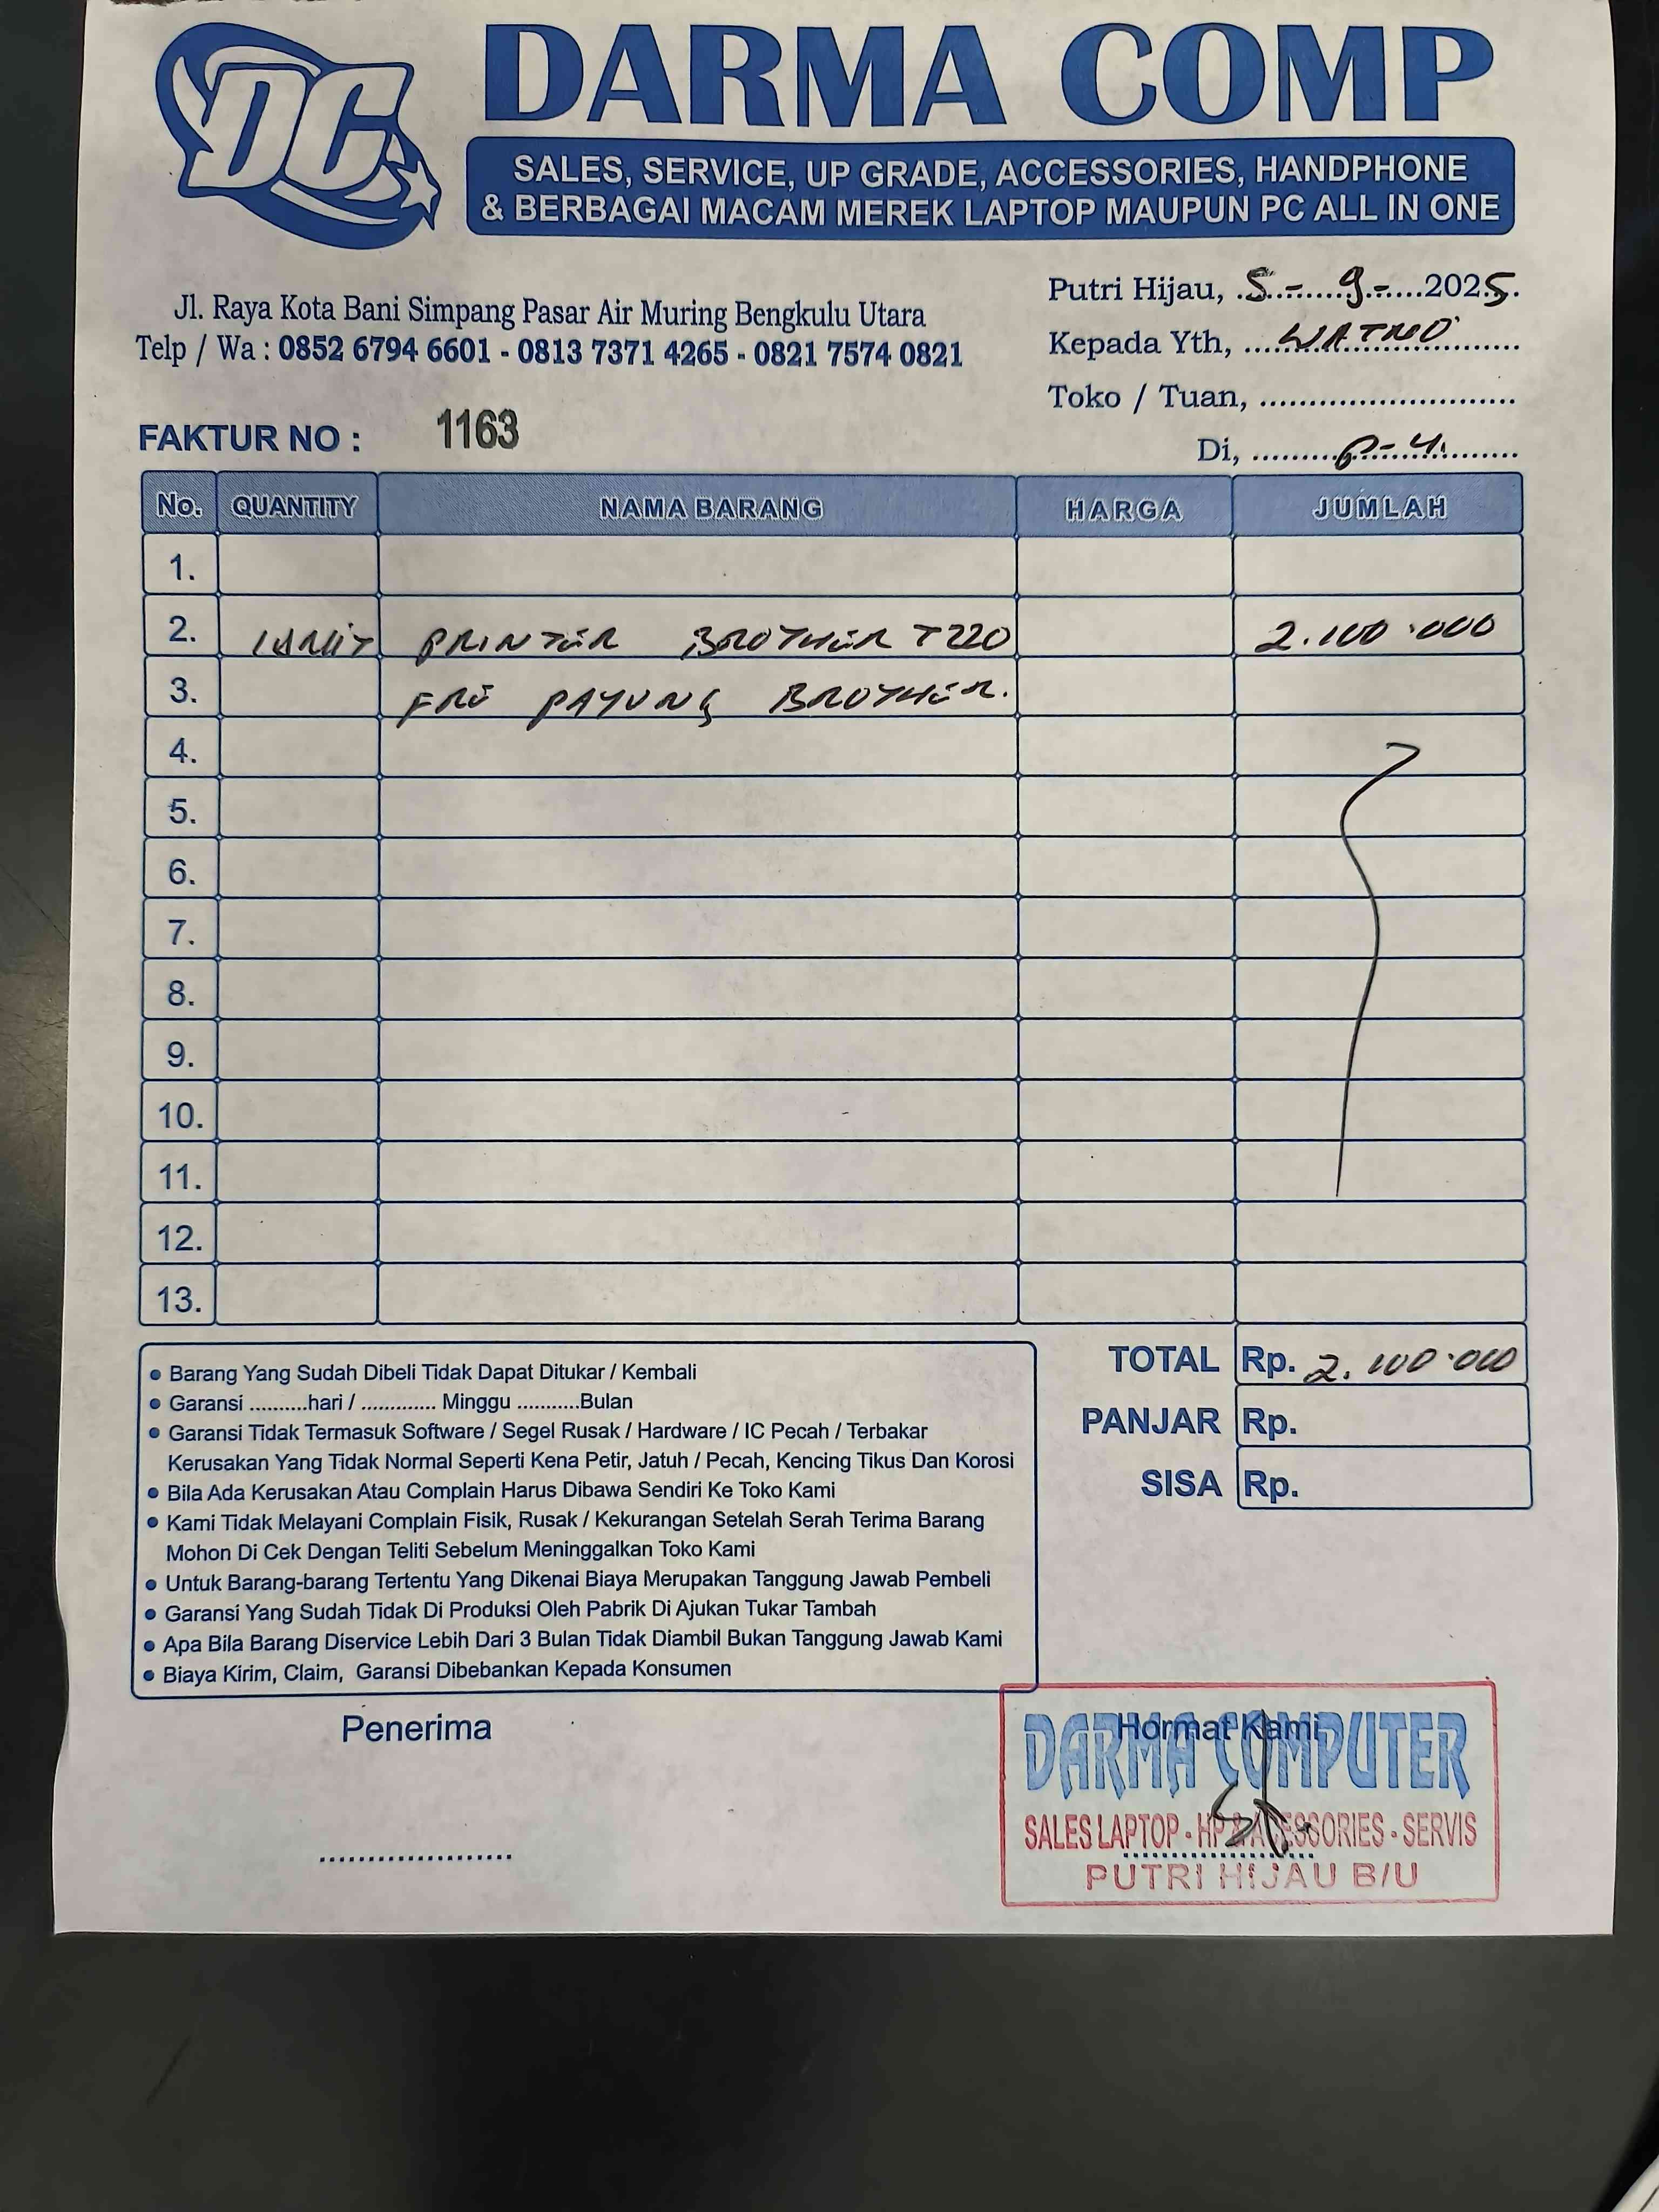 DC
DARMA COMP
SALES, SERVICE, UP GRADE, ACCESSORIES, HANDPHONE
& BERBAGAI MACAM MEREK LAPTOP MAUPUN PC ALL IN ONE
Jl. Raya Kota Bani Simpang Pasar Air Muring Bengkulu Utara
Telp / Wa : 0852 6794 6601 - 0813 7371 4265 - 0821 7574 0821
Putri Hijau, 5 - 9 - 2025.
Kepada Yth, WATNO
Toko / Tuan, ..........................
FAKTUR NO : 1163
Di, P-H.
No. QUANTITY NAMA BARANG HARGA JUMLAH
1.
2. 1 UNIT PRINTER BROTHER T220 2.100.000
3. FRE PAYUNG BROTHER.
4.
5.
6.
7.
8.
9.
10.
11.
12.
13.
TOTAL Rp. 2.100.000
PANJAR Rp.
SISA Rp.
• Barang Yang Sudah Dibeli Tidak Dapat Ditukar / Kembali
• Garansi ..........hari / ............. Minggu ...........Bulan
• Garansi Tidak Termasuk Software / Segel Rusak / Hardware / IC Pecah / Terbakar
Kerusakan Yang Tidak Normal Seperti Kena Petir, Jatuh / Pecah, Kencing Tikus Dan Korosi
• Bila Ada Kerusakan Atau Complain Harus Dibawa Sendiri Ke Toko Kami
• Kami Tidak Melayani Complain Fisik, Rusak / Kekurangan Setelah Serah Terima Barang
Mohon Di Cek Dengan Teliti Sebelum Meninggalkan Toko Kami
• Untuk Barang-barang Tertentu Yang Dikenai Biaya Merupakan Tanggung Jawab Pembeli
• Garansi Yang Sudah Tidak Di Produksi Oleh Pabrik Di Ajukan Tukar Tambah
• Apa Bila Barang Diservice Lebih Dari 3 Bulan Tidak Diambil Bukan Tanggung Jawab Kami
• Biaya Kirim, Claim, Garansi Dibebankan Kepada Konsumen
Penerima
Hormat Kami
DARMA COMPUTER
SALES LAPTOP - HP & ACESSORIES - SERVIS
PUTRI HIJAU B/U